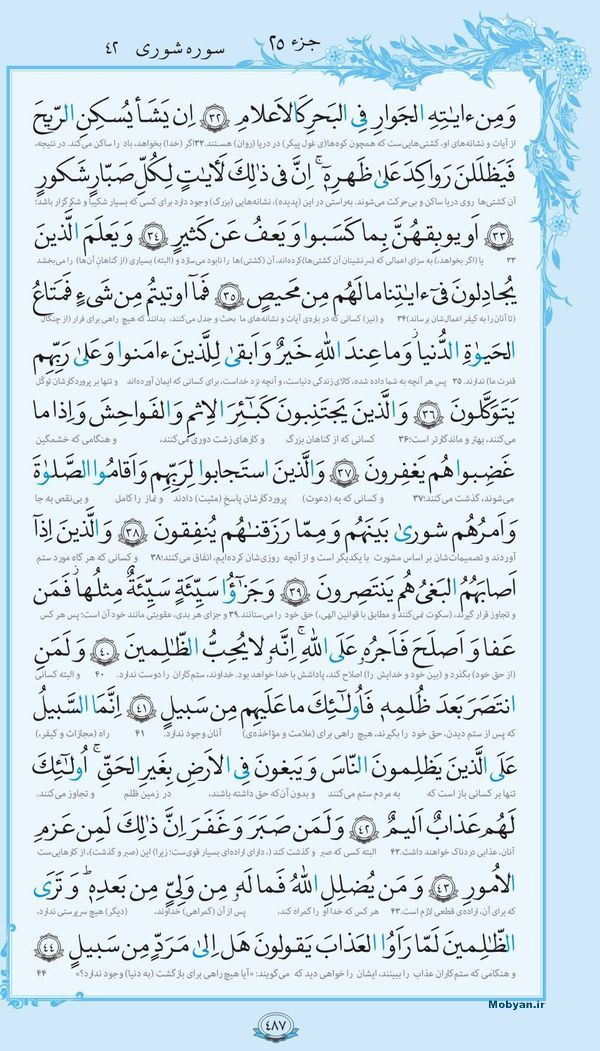 جزء ۲۵ سوره شوری ۴۲
وَ مِن ءایٰتِهِ الجَوارِ فِی البَحرِ کَالاَعلامِ ﴿۳۲﴾ اِن یَشَأ یُسکِنِ الرّیحَ
از آیات و نشانه‌های او، کشتی‌هایی‌ست که همچون کوه‌ها(ی غول پیکر) در دریا (روان) هستند.۳۲ اگر (خدا) بخواهد، باد را ساکن می‌کند. در نتیجه،
فَیَظلَلنَ رَواکِدَ عَلىٰ ظَهرِهٖ ۚ اِنَّ فی ذٰلِکَ لَأٰیاتٍ لِکُلِّ صَبّارٍ شَکورٍ
آن کشتی‌ها روی دریا ساکن و بی‌حرکت می‌شوند. به‌راستی در این (پدیده)، نشانه‌هایی (بزرگ) وجود دارد برای کسی که بسیار شکیبا و شکرگزار باشد؛
﴿۳۳﴾ اَو یوبِقهُنَّ بِما کَسَبوا وَ یَعفُ عَن کَثیرٍ ﴿۳۴﴾ وَ یَعلَمَ الَّذینَ
۳۳ یا (اگر بخواهد،) به سزای اعمالی که (سرنشینان آن کشتی‌ها) کرده‌اند، آن (کشتی‌)ها را نابود می‌سازد و (البته) بسیاری (از گناهانِ آن‌ها) را می‌بخشد
یُجادِلونَ فی ءایٰتِنا ما لَهُم مِن مَحیصٍ ﴿۳۵﴾ فَما اوتیتُم مِن شَیءٍ فَمَتاعُ
(تا آنان را به کیفر اعمال‌شان برساند)۳۴ و (نیز) کسانی که درباره‌ی آیات و نشانه‌های ما بحث و جدل می‌کنند، بدانند که هیچ راهی برای فرار (از چنگال
الحَیوٰةِ الدُّنیا ۖ وَ ما عِندَ اللهِ خَیرٌ وَ اَبقىٰ لِلَّذینَ ءامَنوا وَ عَلىٰ رَبِّهِم
قدرت ما) ندارند. ۳۵ پس هر آنچه به شما داده شده، کالای زندگی دنیاست، و آنچه نزد خداست، برای کسانی که ایمان آورده‌اند و تنها بر پروردگارشان توکّل
یَتَوَکَّلونَ ﴿۳۶﴾ وَ الَّذینَ یَجتَنِبونَ کَبٰئِرَ الاِثمِ وَ الفَواحِشَ وَ اِذا ما
می‌کنند، بهتر و ماندگارتر است؛۳۶ کسانی که از گناهان بزرگ و کارهای زشت دوری می‌کنند، و هنگامی که خشمگین
غَضِبوا هُم یَغفِرونَ ﴿۳۷﴾ وَ الَّذینَ استَجابوا لِرَبِّهِم وَ اَقامُوا الصَّلوٰةَ
می‌شوند، گذشت می‌کنند؛۳۷ و کسانی که به (دعوت) پروردگارشان پاسخِ (مثبت) دادند و نماز را کامل و بی‌نقص به جا
وَ اَمرُهُم شورىٰ بَینَهُم وَ مِمّا رَزَقنٰهُم یُنفِقونَ ﴿۳۸﴾ وَ الَّذینَ اِذا
آوردند و تصمیمات‌شان بر اساس مشورت با یکدیگر است و از آنچه روزی‌شان کرده‌ایم، انفاق می‌کنند؛۳۸ و کسانی که هر گاه مورد ستم
اَصابَهُمُ البَغیُ هُم یَنتَصِرونَ ﴿۳۹﴾ وَ جَزٰؤُا سَیِّئَةٍ سَیِّئَةٌ مِثلُها ۖ فَمَن
و تجاوز قرار گیرند، (سکوت نمی‌کنند و مطابق با قوانین الهی،) حق خود را می‌ستانند.۳۹ و جزای هر بدی، عقوبتی مانند خود آن است؛ پس هر کس
عَفا وَ اَصلَحَ فَاَجرُهٗ عَلَی اللهِ ۚ اِنَّهٗ لا یُحِبُّ الظّٰلِمینَ ﴿۴۰﴾ وَ لَمَنِ
(از حق خود) بگذرد و (بین خود و خدایش را) اصلاح کند، پاداشش با خدا خواهد بود. خداوند، ستم‌کاران را دوست ندارد. ۴۰ و البته کسانی
انتَصَرَ بَعدَ ظُلمِهٖ فَاُولٰئِکَ ما عَلَیهِم مِن سَبیلٍ ﴿۴۱﴾ اِنَّمَا السَّبیلُ
که پس از ستم دیدن، حق خود را بگیرند، هیچ راهی برای (ملامت و مؤاخذه‌ی) آنان وجود ندارد. ۴۱ راه (مجازات و کیفر)،
عَلَی الَّذینَ یَظلِمونَ النّاسَ وَ یَبغونَ فِی الاَرضِ بِغَیرِ الحَقِّ ۚ اُولٰئِکَ
تنها بر کسانی باز است که به مردم ستم می‌کنند و بدون آن‌که حق داشته باشند، در زمین ظلم و تجاوز می‌کنند.
لَهُم عَذابٌ اَلیمٌ ﴿۴۲﴾ وَ لَمَن صَبَرَ وَ غَفَرَ اِنَّ ذٰلِکَ لَمِن عَزمِ
آنان، عذابی دردناک خواهند داشت.۴۲ البته کسی که صبر و گذشت کند (، دارای اراده‌ای بسیار قوی‌ست؛ زیرا) این (صبر و گذشت)، از کارهایی‌ست
الاُمورِ ﴿۴۳﴾ وَ مَن یُضلِلِ اللهُ فَما لَهٗ مِن وَلِیٍّ مِن بَعدِهٖ ۗ وَ تَرَی
که برای آن، اراده‌ی قطعی لازم است.۴۳ هر کس که خدا او را گمراه کند، پس از آن (گمراهی) خداوند، (دیگر) هیچ سرپرستی ندارد،
الظّٰلِمینَ لَمّا رَاَوُا العَذابَ یَقولونَ هَل اِلىٰ مَرَدٍّ مِن سَبیلٍ ﴿۴۴﴾
و هنگامی که ستم‌کاران عذاب را ببینند، ایشان را خواهی دید که می‌گویند: «آیا هیچ راهی برای بازگشت (به دنیا) وجود ندارد؟» ۴۴
۴۸۷
Mobyan.ir